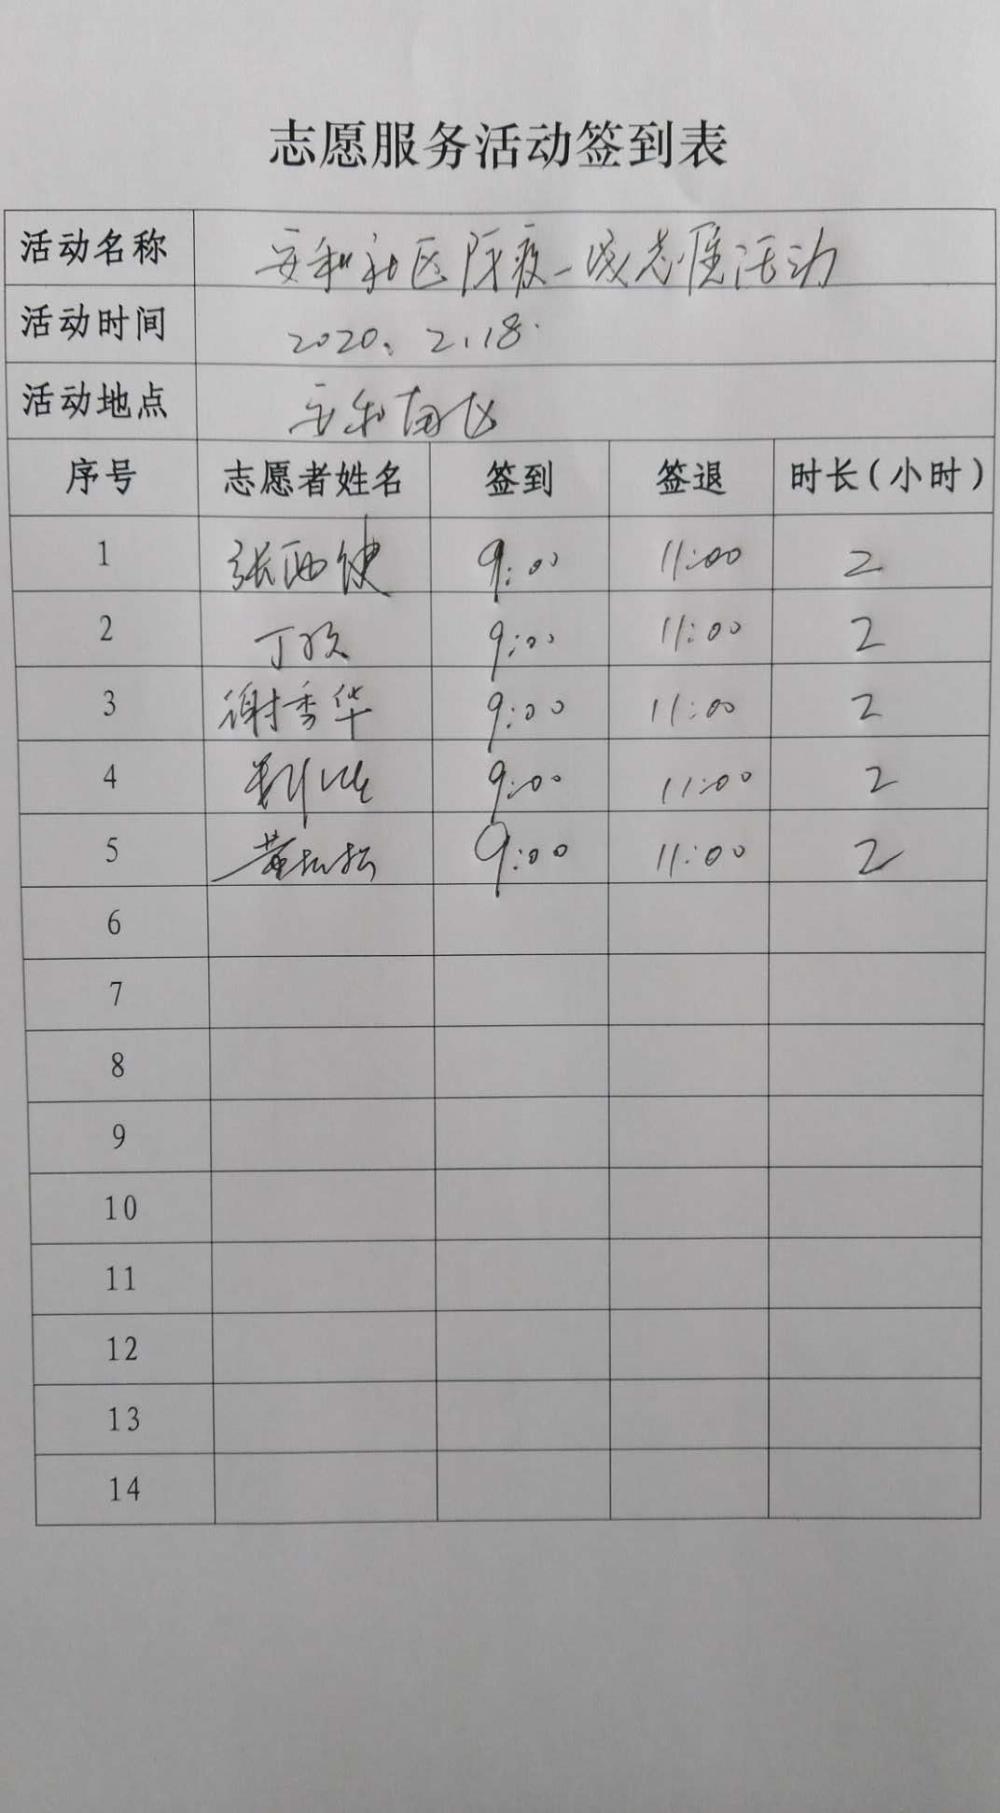 志愿服务活动签到表
活动名称 安和社区防疫一线志愿活动
活动时间 2020.2.18.
活动地点 安和南区
序号 志愿者姓名 签到 签退 时长(小时)
1 张西健 9:00 11:00 2
2 丁 9:00 11:00 2
3 谢秀华 9:00 11:00 2
4 9:00 11:00 2
5 黄 9:00 11:00 2
6
7
8
9
10
11
12
13
14